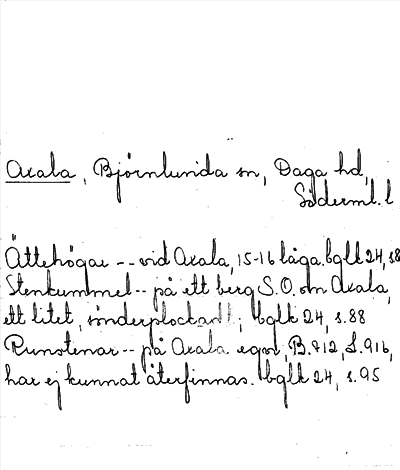 Axala, Björnlunda sn, Daga hd,
Söderml. l
Ättehögar -- vid Axala, 15-16 låga. bglk 24, s8
Stenkummel -- på ett berg S.O. om Axala,
ett litet, sönderplockadt; bglk 24, s.88
Runstenar -- på Axala egor, B.812, L.916,
har ej kunnat återfinnas. bglk 24, s.95